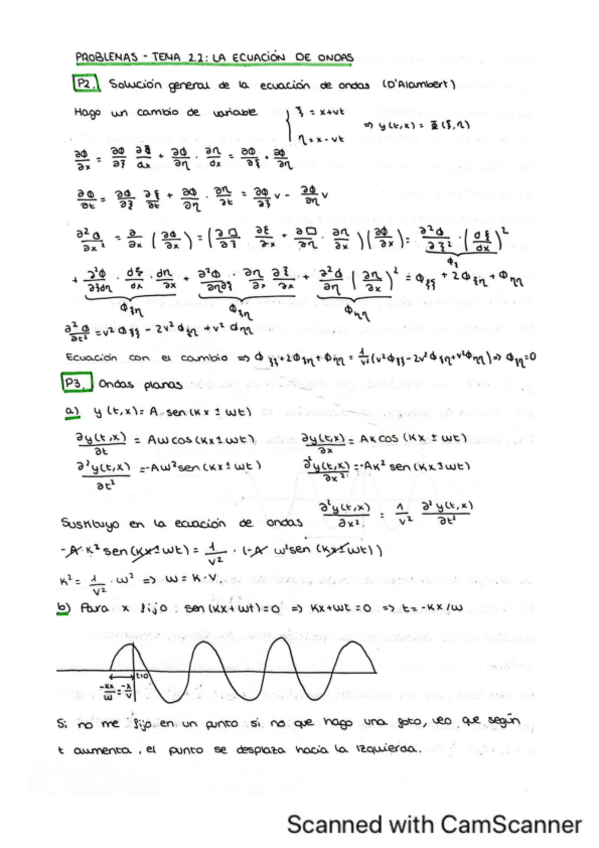 PROBLEMAS - TEMA 2.2: LA ECUACIÓN DE ONDAS
P2. Solución general de la ecuación de ondas (D'Alambert)
Hago un cambio de variable { ξ = x+vt
η = x-vt ⇒ y(t,x) = Φ(ξ,η)
∂Φ/∂x = ∂Φ/∂ξ ∂ξ/dx + ∂Φ/∂η · ∂η/dx = ∂Φ/∂ξ + ∂Φ/∂η
∂Φ/∂t = ∂Φ/∂ξ · ∂ξ/∂t + ∂Φ/∂η · ∂η/∂t = ∂Φ/∂ξ v - ∂Φ/∂η v
∂²Φ/∂x² = ∂/∂x (∂Φ/∂x) = (∂□/∂ξ · ∂ξ/∂x + ∂□/∂η · ∂η/∂x)(∂Φ/∂x) = ∂²Φ/∂ξ² · (dξ/dx)²
+ ∂²Φ/∂ξdη · dξ/dx · dη/∂x + ∂²Φ/∂η∂ξ · ∂η/∂x ∂ξ/∂x + ∂²Φ/∂η (∂η/∂x)² = Φξξ + 2Φξη + Φηη
Φξη Φξη Φηη
∂²Φ/∂t² = v²Φξξ - 2v²Φξη + v²Φηη
Ecuación con el cambio ⇒ Φξξ + 2Φξη + Φηη = 1/v² (v²Φξξ - 2v²Φξη + v²Φηη) ⇒ Φξη = 0
P3. Ondas planas
a) y(t,x) = A·sen(Kx ± wt)
∂y(t,x)/∂t = Aw cos(Kx ± wt) ∂y(t,x)/∂x = AK cos(Kx ± wt)
∂²y(t,x)/∂t² = -Aw² sen(Kx ± wt) ∂²y(t,x)/∂x² = -AK² sen(Kx ± wt)
Sustituyo en la ecuación de ondas ∂²y(t,x)/∂x² = 1/v² ∂²y(t,x)/∂t²
-A K² sen(Kx ± wt) = 1/v² · (-A w² sen(Kx ± wt))
K² = 1/v² · w² ⇒ w = K·v.
b) Para x fijo: sen(Kx + wt) = 0 ⇒ Kx + wt = 0 ⇒ t = -Kx/w
t=0
-Kx/w = -x/v
Si no me fijo en un punto si no que hago una foto, veo que según
t aumenta, el punto se desplaza hacia la izquierda.
Scanned with CamScanner